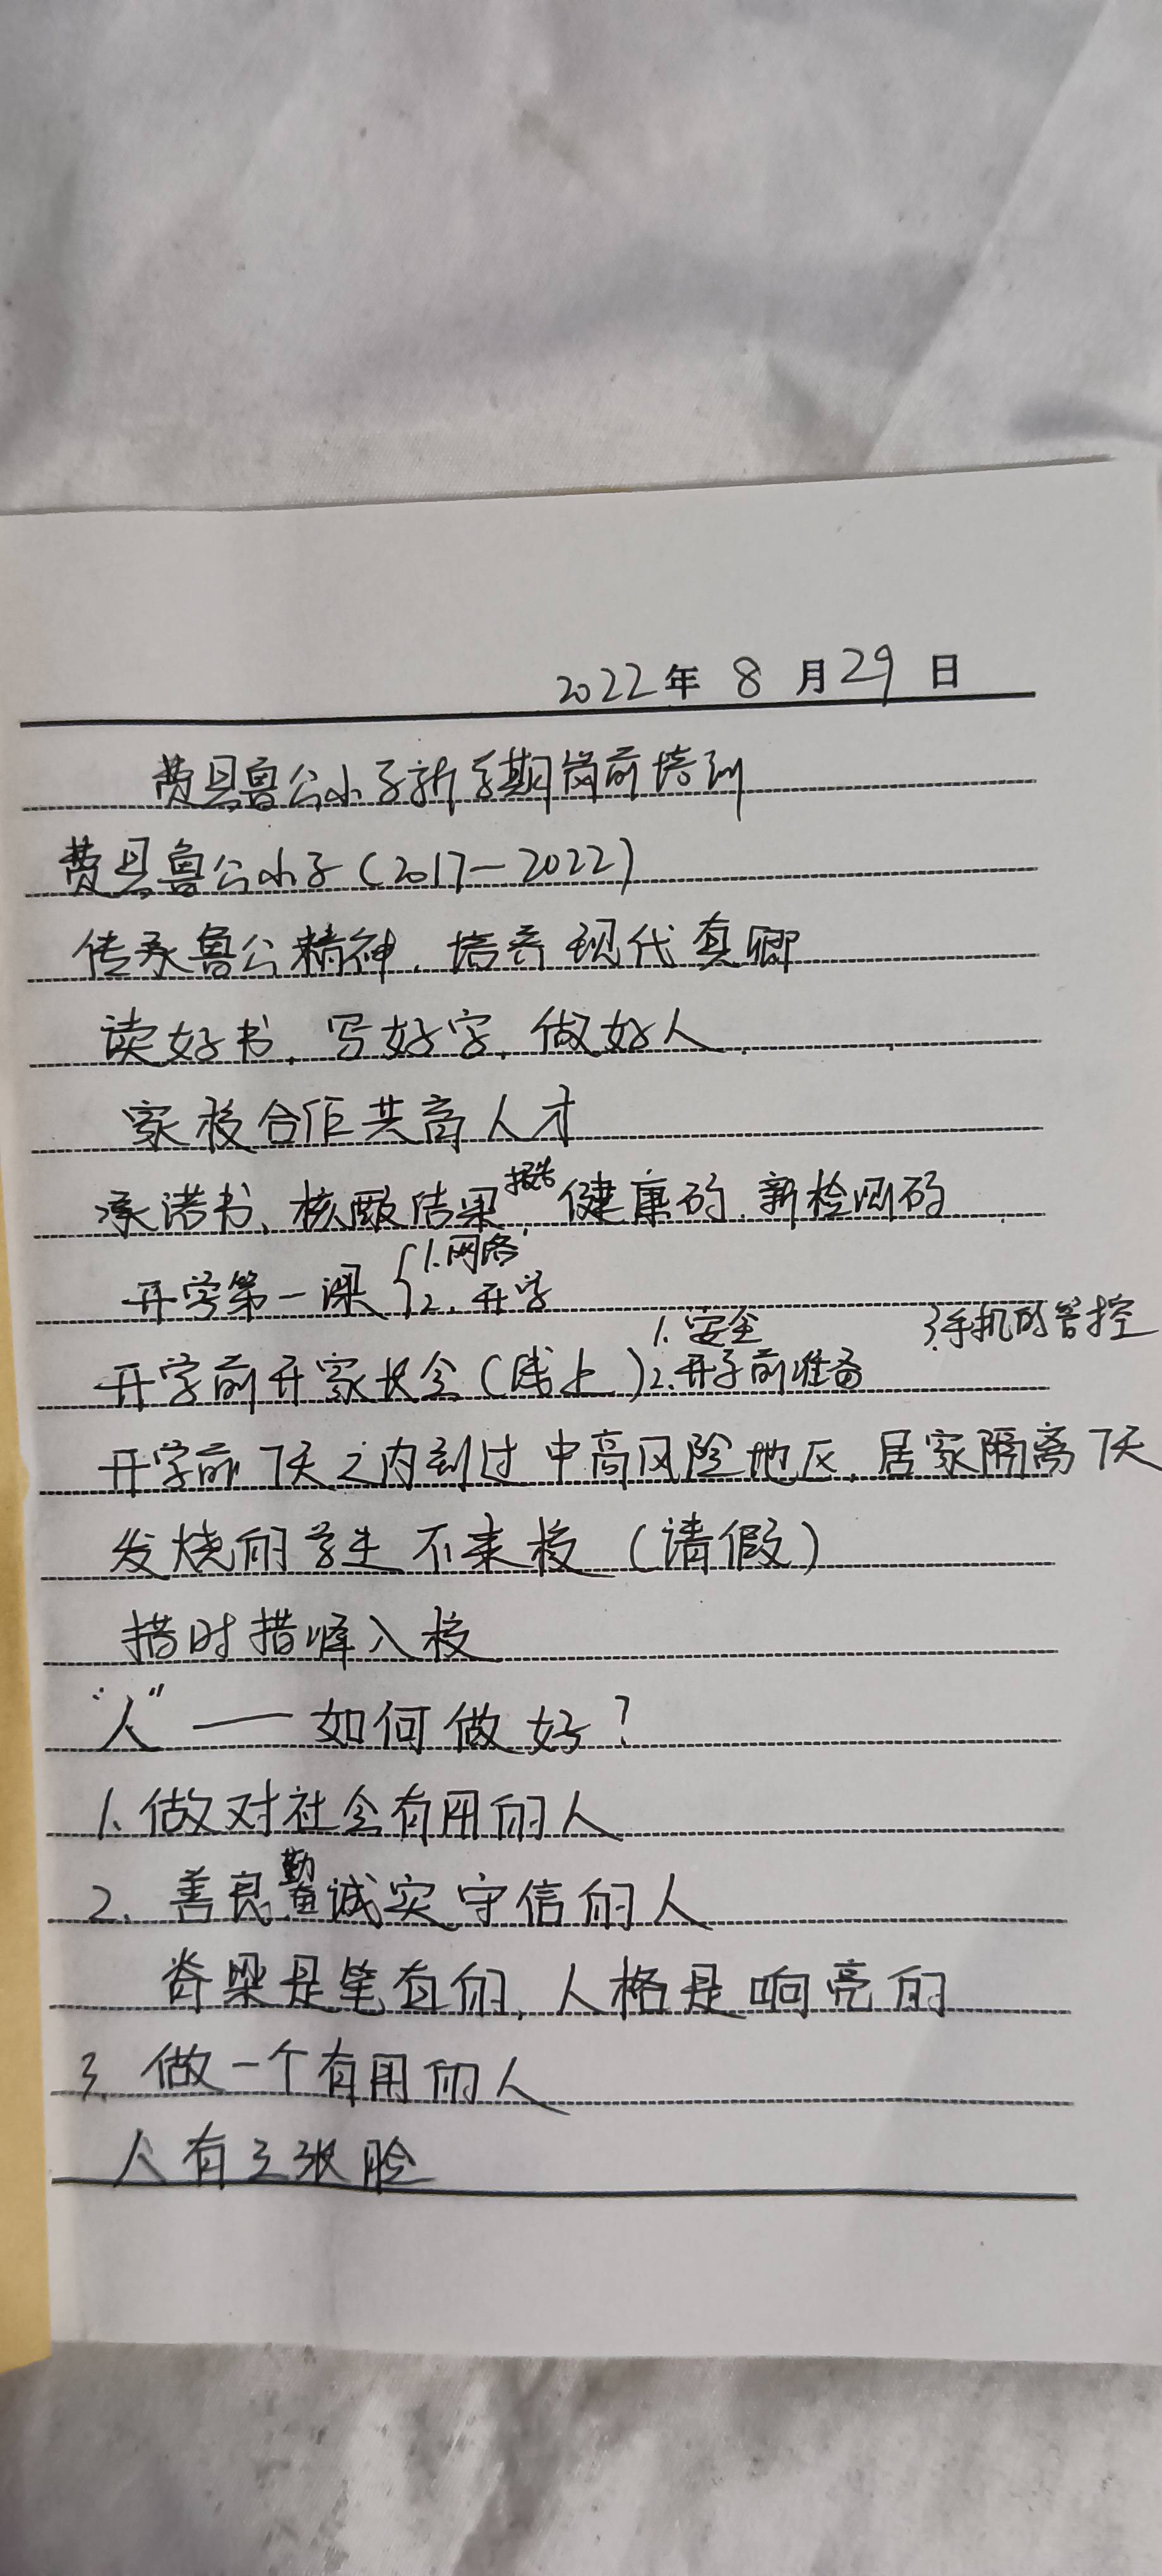 2022年 8 月29 日
费县鲁公小学新学期岗前培训
费县鲁公小学(2017—2022)
传承鲁公精神,培养现代真卿
读好书,写好字,做好人
家校合作共育人才
承诺书、核酸结果报告,健康码,新检测码
开学第一课{1.网络
2.开学
开学前开家长会(线上)1.安全
2.开学前准备
3.手机的管控
开学前7天之内到过中高风险地区,居家隔离7天
发烧的学生不来校(请假)
措时措峰入校
“人”——如何做好?
1.做对社会有用的人
2.善良勤奋诚实守信的人
脊梁是笔直的,人格是响亮的
3.做一个有用的人
人有三张脸